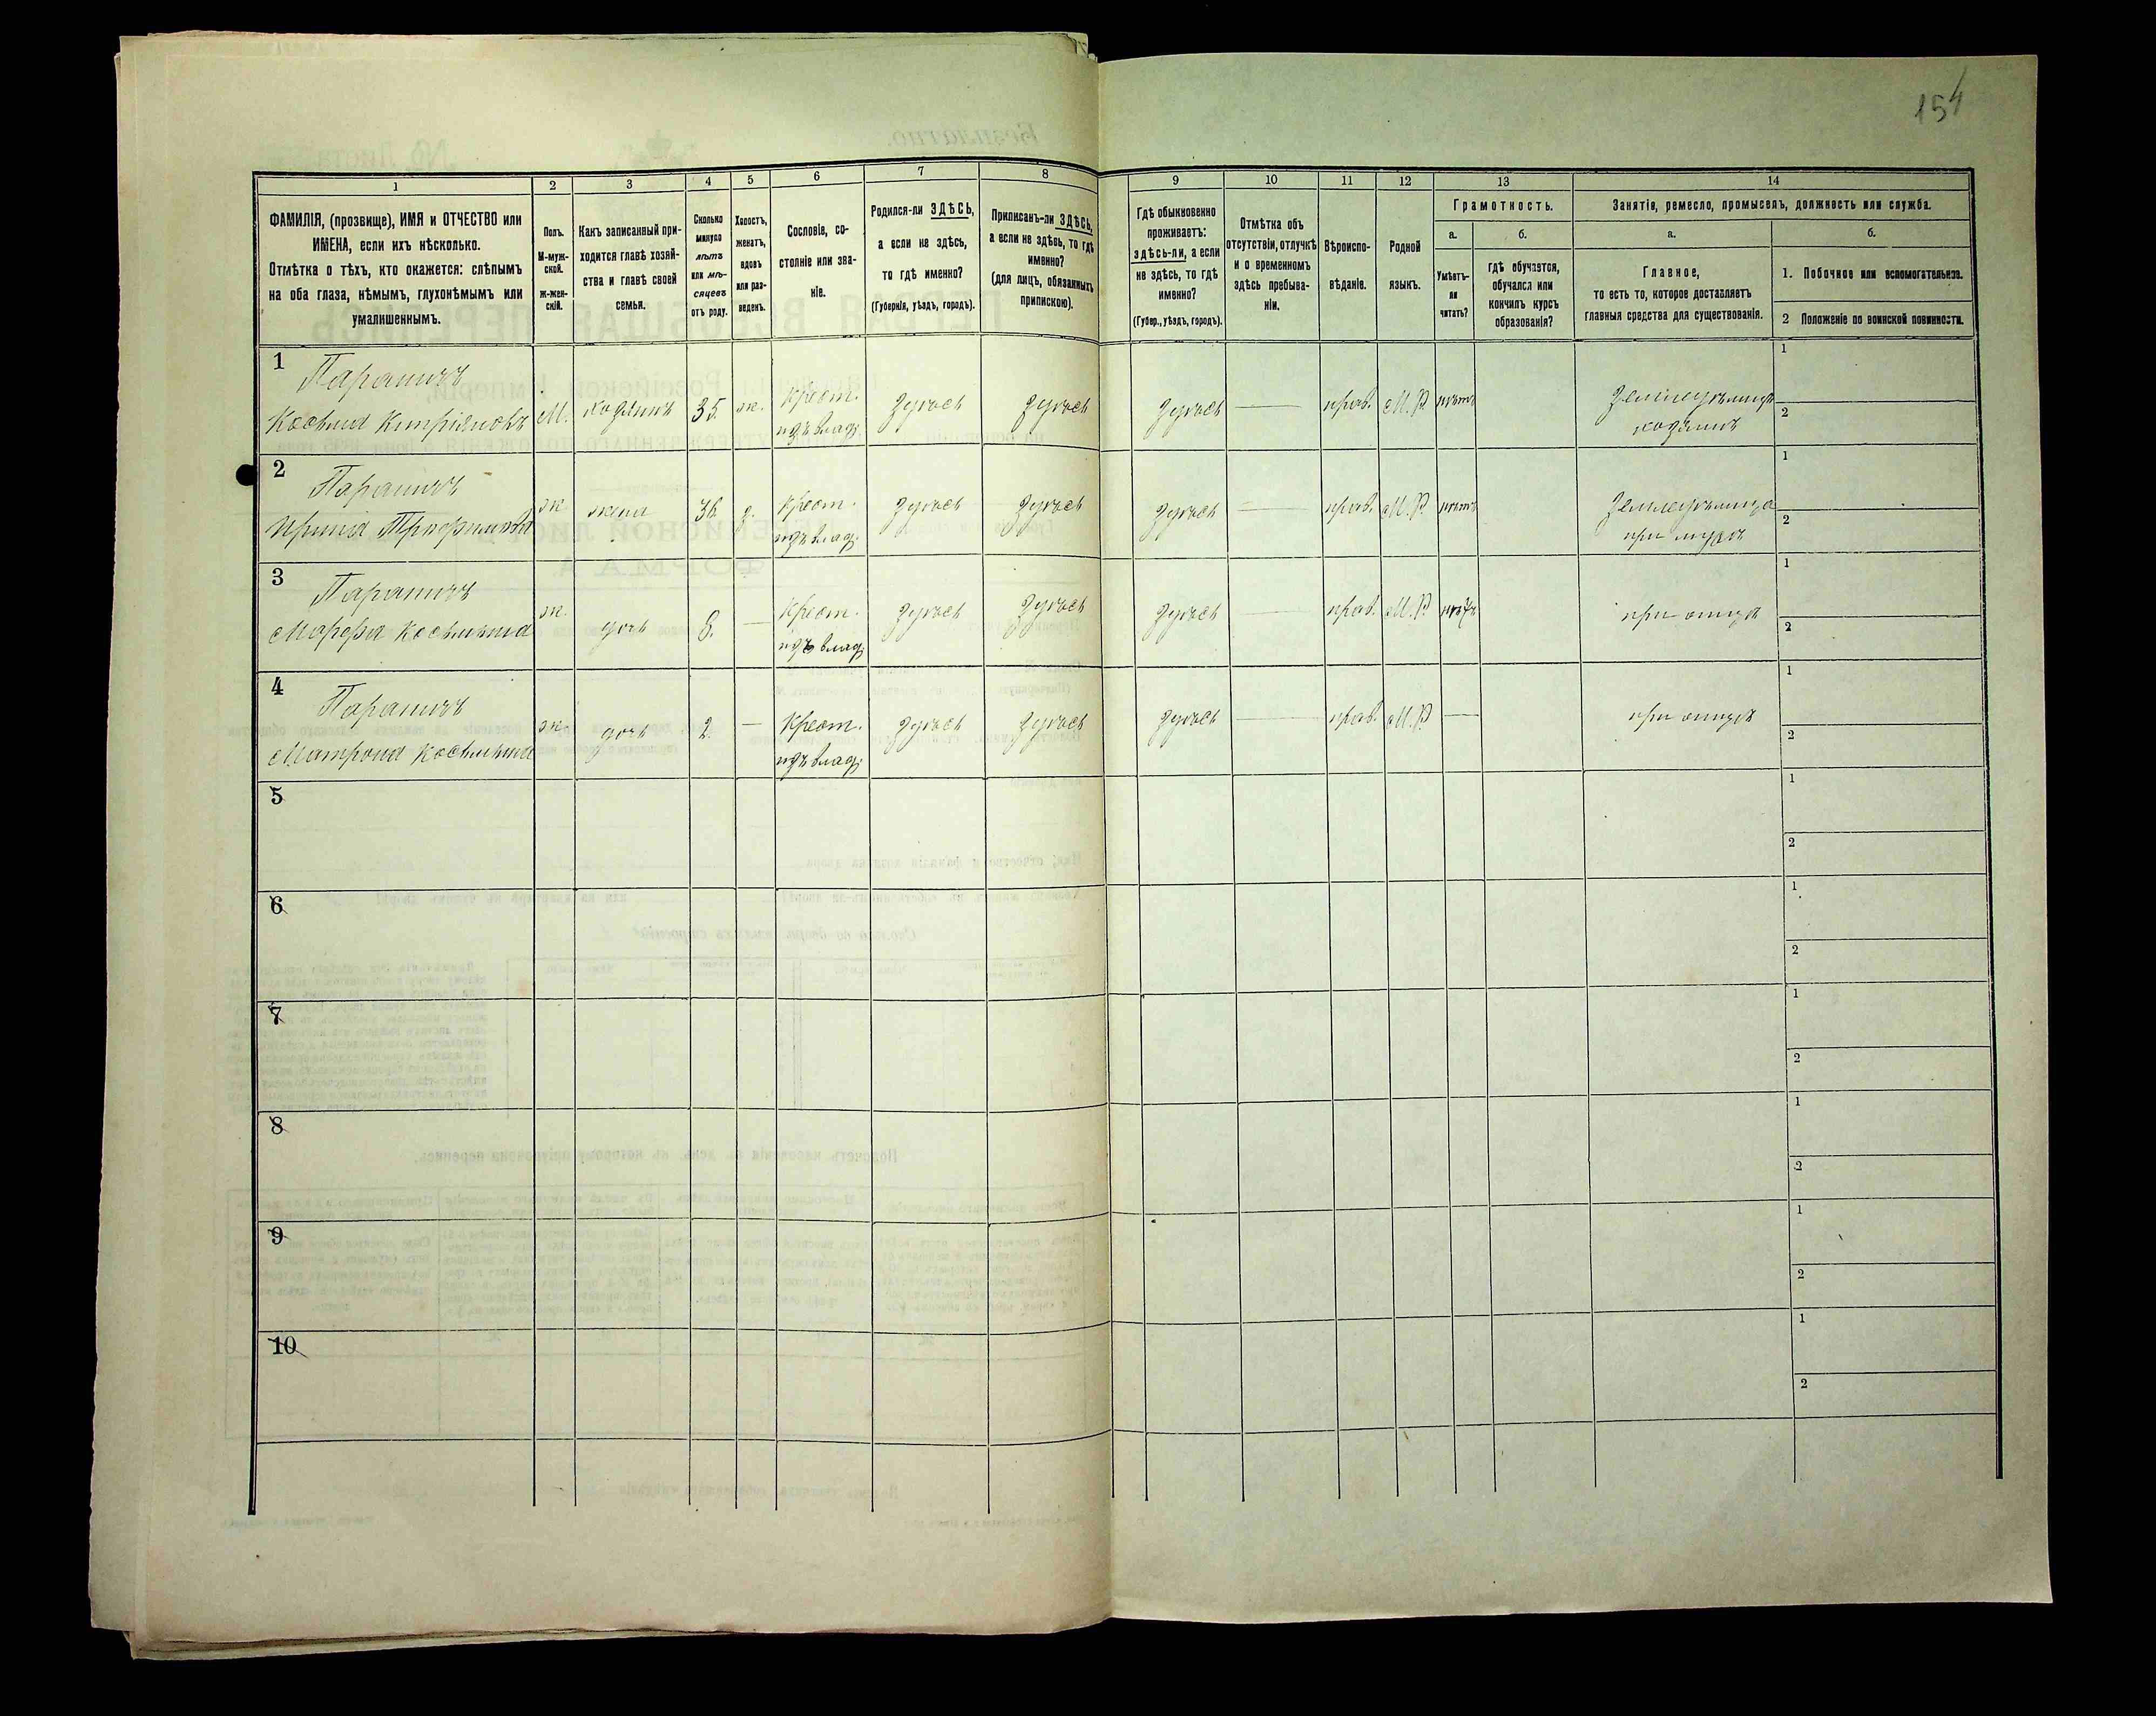 154
1
2
3
4
5
6
7
8
9
10
11
12
13
14
ФАМИЛІЯ, (прозвище), ИМЯ и ОТЧЕСТВО или
ИМЕНА, если ихъ нѣсколько.
Отмѣтка о тѣхъ, кто окажется: слѣпымъ
на оба глаза, нѣмымъ, глухонѣмымъ или
умалишеннымъ.
Полъ.
М-муж-
ской.
ж-жен-
скій.
Какъ записанный при-
ходится главѣ хозяй-
ства и главѣ своей
семьи.
Сколько
минуло
лѣтъ
или мѣ-
сяцевъ
отъ роду.
Холостъ,
женатъ,
вдовъ
или раз-
веденъ.
Сословіе, со-
стояніе или зва-
ніе.
Родился-ли ЗДѢСЬ,
а если не здѣсь,
то гдѣ именно?
(Губернія, уѣздъ, городъ).
Приписанъ-ли ЗДѢСЬ,
а если не здѣсь, то гдѣ
именно?
(для лицъ, обязанныхъ
припискою).
Гдѣ обыкновенно
проживаетъ:
здѣсь-ли, а если
не здѣсь, то гдѣ
именно?
(Губер., уѣздъ, городъ).
Отмѣтка объ
отсутствіи, отлучкѣ
и о временномъ
здѣсь пребыва-
ніи.
Вѣроиспо-
вѣданіе.
Родной
языкъ.
Грамотность.
а.
Умѣетъ-
ли
читать?
б.
гдѣ обучается,
обучался или
кончилъ курсъ
образованія?
Занятія, ремесло, промыселъ, должность или служба.
а.
Главное,
то есть то, которое доставляетъ
главныя средства для существованія.
б.
1. Побочное или вспомогательное.
2 Положеніе по воинской повинности.
1
Параничъ
Косьма Кипріяновъ М. хозяинъ 35. ж. Крест. изъ влад. здѣсь здѣсь здѣсь — прав. М.Р. нѣтъ Земледѣлецъ хозяинъ
1
2
2
Параничъ
Ирина ж жена 36 з. Крест. изъ влад. здѣсь здѣсь здѣсь — прав. М.Р. нѣтъ при мужѣ
1
2
3
Параничъ
Марфа Косьмина ж. дочь 8. — Крест. изъ влад. здѣсь здѣсь здѣсь — прав. М.Р. нѣтъ при отцѣ
1
2
4
Параничъ
Матрона Косьмина ж. дочь 2. — Крест. изъ влад. здѣсь здѣсь здѣсь — прав. М.Р. — при отцѣ
1
2
5
1
2
6
1
2
7
1
2
8
1
2
9
1
2
10
1
2